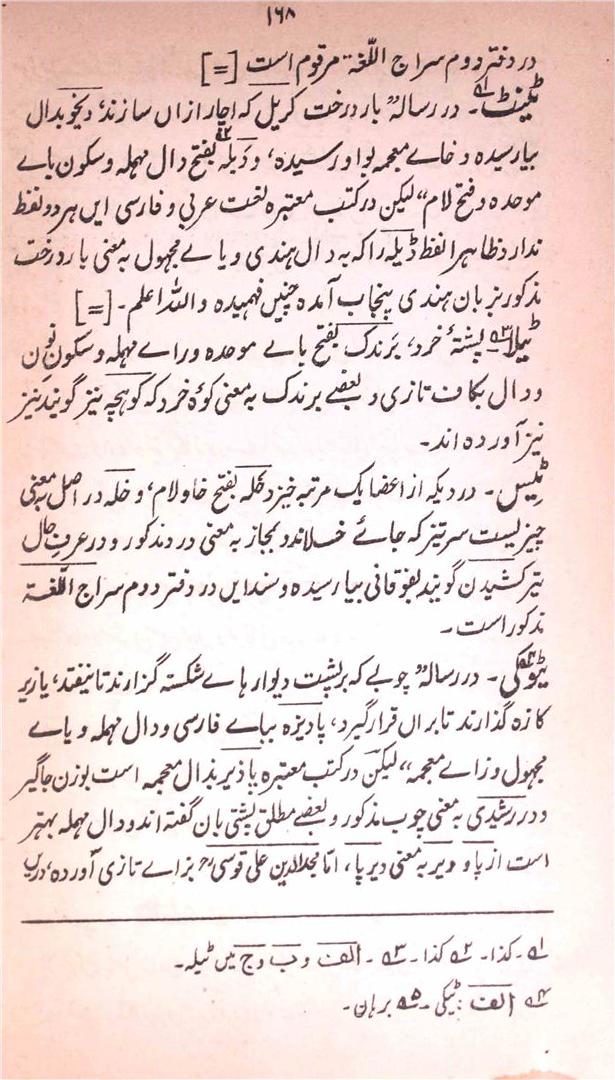 ۱۶۸
در دفتر دوم سراج اللّغۃ مرقوم است [=]
ٹینٹ۱ـ ـ در رسالہ” بار درخت کریل کہ اچار ازاں سازند، دیخو بدال
بیا رسیدہ و خاے معجمہ بوا و رسیدہ، و دَبلہ۲ـ بفتح دال مہملہ و سکون باے
موحدہ و فتح لام“ لیکن در کتب معتبرہ لغت عربی و فارسی ایں ہر دو لفظ
ندارد ظاہرا لفظ ڈیلہ را کہ بہ دال ہندی و یاے مجہول بہ معنی بار درخت
مذکور بزبان ہندی پنجاب آمدہ چنیں فہمیدہ واللہ اعلم۔ [=]
ٹیلا۳ـ ـ پشتۂ خرد، برندک بفتح باے موحدہ و راے مہملہ و سکون نون
و دال بکاف تازی و بعضے برندک بہ معنی کوہ خرد کہ کوہچہ نیز گویند نیز
نیز آوردہ اند۔
ٹیس ۔ در دیکہ از اعضا یک مرتبہ خیزد خلہ بفتح خا و لام، و خلہ در اصل بہ معنی
چیزیست سر تیز کہ جائے خلاند و بمجاز بہ معنی درد مذکور و در عرف حال
تیر کشیدن گویند بفوقانی بیا رسیدہ و سند ایں در دفتر دوم سراج اللّغۃ
مذکور است۔
ٹیوکی۴ـ ۔ در رسالہ” چوبے کہ بر پشت دیوار ہاے شکستہ گزارند تا نیفتد، یا زیر
کازہ گذارند تا براں قرار گیرد، پادیزہ بباے فارسی و دال مہملہ و یاے
مجہول و زاے معجمہ“ لیکن در کتب معتبرہ پاذیر بذال معجمہ است بوزن جاگیر
و در رشیدی بہ معنی چوب مذکور و بعضے مطلق پشتی بان گفتہ اند و دال مہملہ بہتر
است از پا و ویر بہ معنی دیرپا، امّا مجدالدین علی قوسیؒ بزاے تازی آوردہ، در
۱ـ ۔ کذا۔ ۲ـ کذا۔ ۳ـ ۔ الف و ب و ج میں ٹیلہ۔
۴ـ الف: ٹیکی ۔ ۵ـ برہان۔